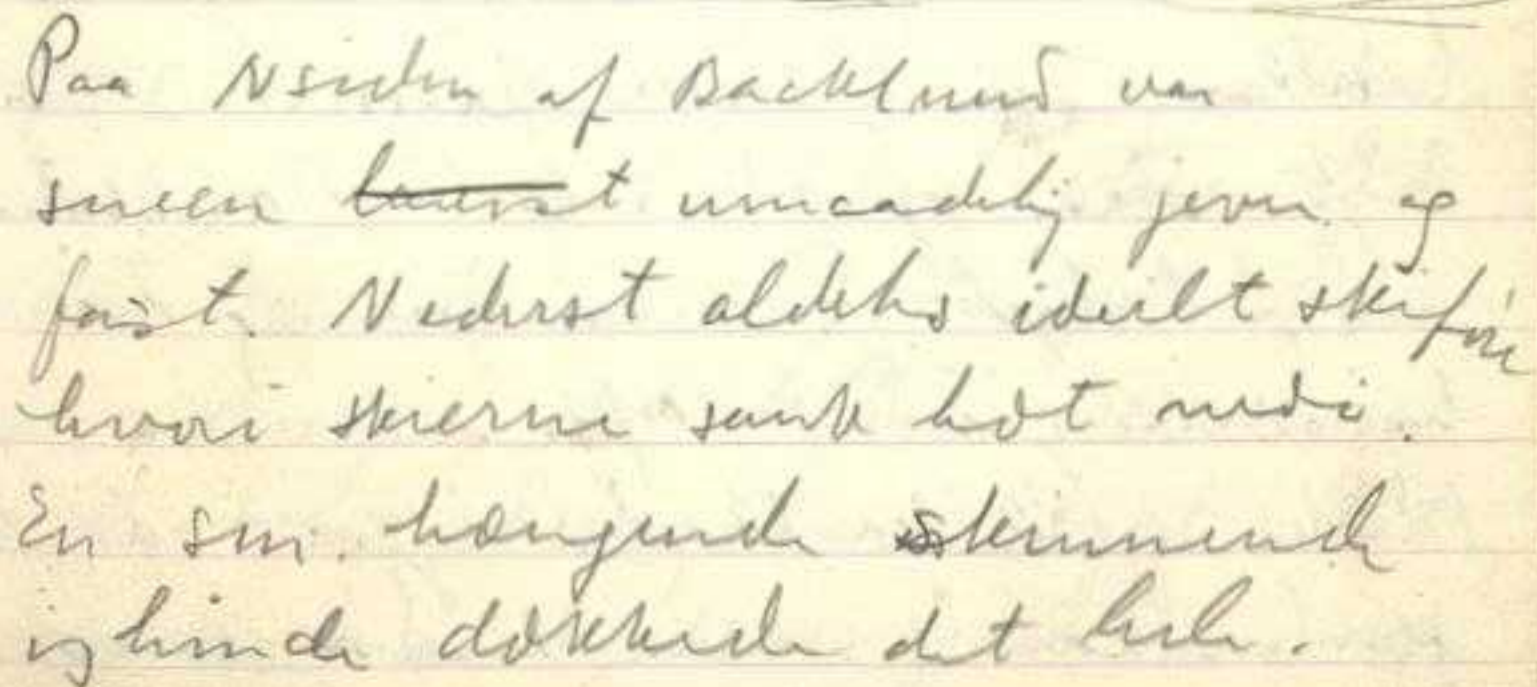 Paa Nsiden af Backlund var
sneen umaadelig jevn og
fast. Nederst aldeles ideelt skiføre
hvori skierne sank lidt nedi.
En sm. hængende skinnende
ishinde dækkede det hele.